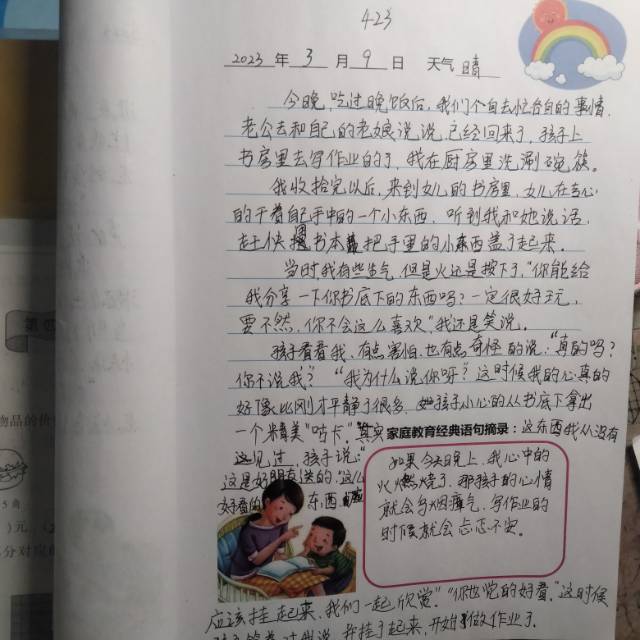 423
2023 年 3 月 9 日 天气 晴
今晚吃过晚饭后,我们个自去忙各自的事情.
老公去和自己的老娘说说已经回来了,孩子上
书房里去写作业的了,我在厨房里洗涮碗筷。
我收拾完以后,来到女儿的书房里,女儿在专心
的干着自己手中的一个小东西,听到我和她说话,
赶快 书本 把手里的小东西盖了起来。
当时我有些生气,但是火还是按下了,"你能给
我分享一下你书底下的东西吗?一定很好玩,
要不然,你不会这么喜欢"我还是笑说。
孩子看看我,有点害怕,也有点奇怪的说:"真的吗?
你不说我?""我为什么说你呀?"这时候我的心真的
好像比刚才平静了很多,她孩子小心的从书底下拿出
一个精美"咕卡",其实
家庭教育经典语句摘录:
这东西我从没有
这见过,孩子说:"
这是好朋友送的,这么
好看的 东西
如果今天晚上,我心中的
火燃烧了,那孩子的心情
就会乌烟瘴气,写作业的
时候就会忐忑不安。
应该挂起来,我们一起欣赏""你也觉的好看,"这时候
我说,我挂了起来,开始做作业了.
第
物品的价
5角
)元,
分对应